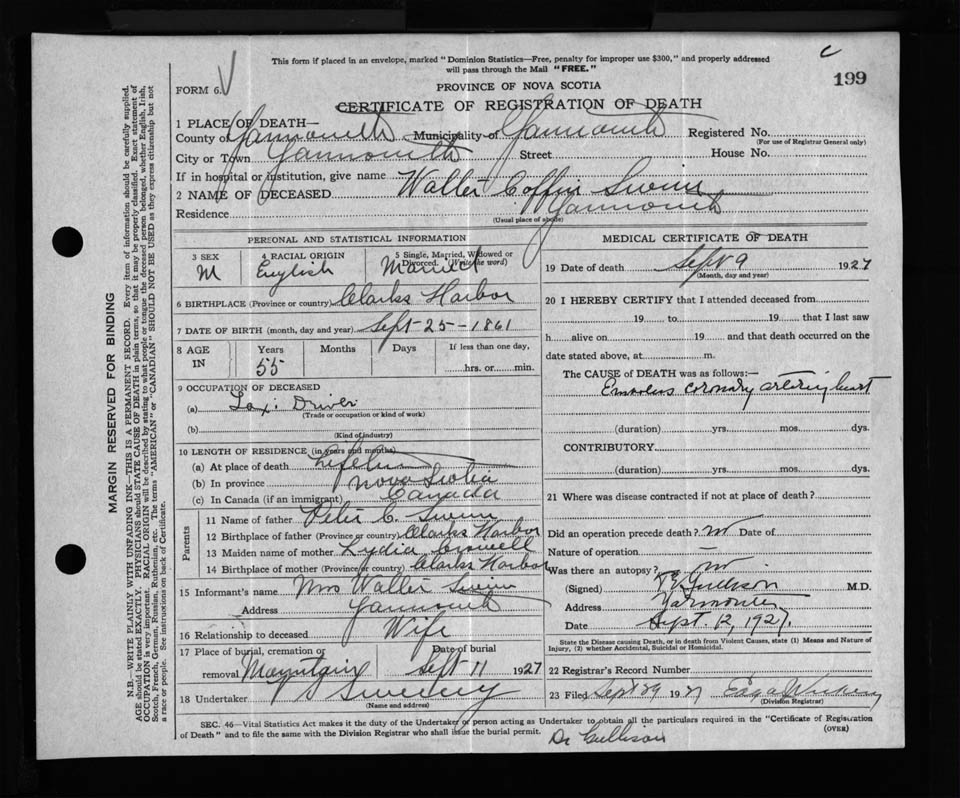 This form if placed in an envelope, marked "Dominion Statistics—Free, penalty for improper use $300," and properly addressed
will pass through the Mail "FREE."
C
199
FORM 6. V
PROVINCE OF NOVA SCOTIA
CERTIFICATE OF REGISTRATION OF DEATH
1 PLACE OF DEATH—
County of Yarmouth Municipality of Yarmouth Registered No.
(For use of Registrar General only)
City or Town Yarmouth Street House No.
If in hospital or institution, give name
2 NAME OF DECEASED Walter Coffin Swim
Residence Yarmouth
(Usual place of abode)
PERSONAL AND STATISTICAL INFORMATION
3 SEX M
4 RACIAL ORIGIN English
5 Single, Married, Widowed or Divorced. (Write the word) Married
6 BIRTHPLACE (Province or country) Clarks Harbor
7 DATE OF BIRTH (month, day and year) Sept-25-1861
8 AGE IN Years Months Days If less than one day,
55 hrs. or min.
9 OCCUPATION OF DECEASED
(a) Taxi Driver
(Trade or occupation or kind of work)
(b)
(Kind of industry)
10 LENGTH OF RESIDENCE (in years and months)
(a) At place of death
(b) In province Nova Scotia
(c) In Canada (if an immigrant) Canada
Parents
11 Name of father Peter C. Swim
12 Birthplace of father (Province or country) Clarks Harbor
13 Maiden name of mother Lydia Crowell
14 Birthplace of mother (Province or country) Clarks Harbor
15 Informant's name Mrs Walter Swim
Address Yarmouth
16 Relationship to deceased Wife
17 Place of burial, cremation or removal Mountain Date of burial Sept 11 1927
18 Undertaker Sweeny
(Name and address)
MEDICAL CERTIFICATE OF DEATH
19 Date of death Sept 9 1927
(Month, day and year)
20 I HEREBY CERTIFY that I attended deceased from
19 to 19 that I last saw
h alive on 19 and that death occurred on the
date stated above, at m.
The CAUSE of DEATH was as follows:—
Embolus coronary artery heart
(duration) yrs. mos. dys.
CONTRIBUTORY
(duration) yrs. mos. dys.
21 Where was disease contracted if not at place of death?
Did an operation precede death? no Date of
Nature of operation —
Was there an autopsy? no
(Signed) Gullison M.D.
Address Yarmouth
Date Sept. 12, 1927.
State the Disease causing Death, or in death from Violent Causes, state (1) Means and Nature of
Injury, (2) whether Accidental, Suicidal or Homicidal.
22 Registrar's Record Number
23 Filed Sept 29 1927
(Division Registrar)
SEC. 46—Vital Statistics Act makes it the duty of the Undertaker or person acting as Undertaker to obtain all the particulars required in the "Certificate of Registration
of Death" and to file the same with the Division Registrar who shall issue the burial permit.
(OVER)
Dr Gullison
MARGIN RESERVED FOR BINDING
N.B.—WRITE PLAINLY WITH UNFADING INK—THIS IS A PERMANENT RECORD. Every item of information should be carefully supplied.
AGE should be stated EXACTLY. PHYSICIANS should STATE CAUSE OF DEATH in plain terms, so that it may be properly classified. Exact statement of
OCCUPATION is very important. RACIAL ORIGIN will be described by stating to what people or tongue the deceased person belonged, whether English, Irish,
Scotch, French, German, Russian, Ruthenian, etc. The terms "AMERICAN" or "CANADIAN" SHOULD NOT BE USED as they express citizenship but not
a race or people. See instructions on back of Certificate.